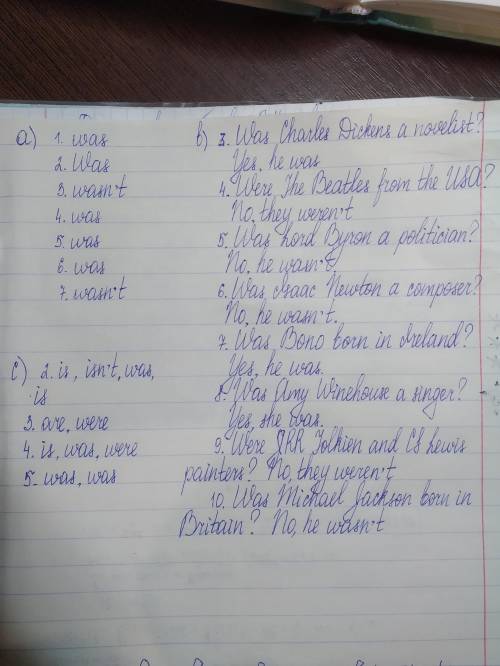 a) 1. was
2. Was
3. wasn't
4. was
5. was
6. was
7. wasn't
b) 3. Was Charles Dickens a novelist?
Yes, he was
4. Were The Beatles from the USA?
No, they weren't
5. Was Lord Byron a politician?
No, he wasn't.
6. Was Isaac Newton a composer?
No, he wasn't.
7. Was Bono born in Ireland?
Yes, he was.
8. Was Amy Winehouse a singer?
Yes, she was.
9. Were JRR Tolkien and CS Lewis
painters? No, they weren't
10. Was Michael Jackson born in
Britain? No, he wasn't
c) 2. is, isn't, was,
is
3. are, were
4. is, was, were
5. was, was